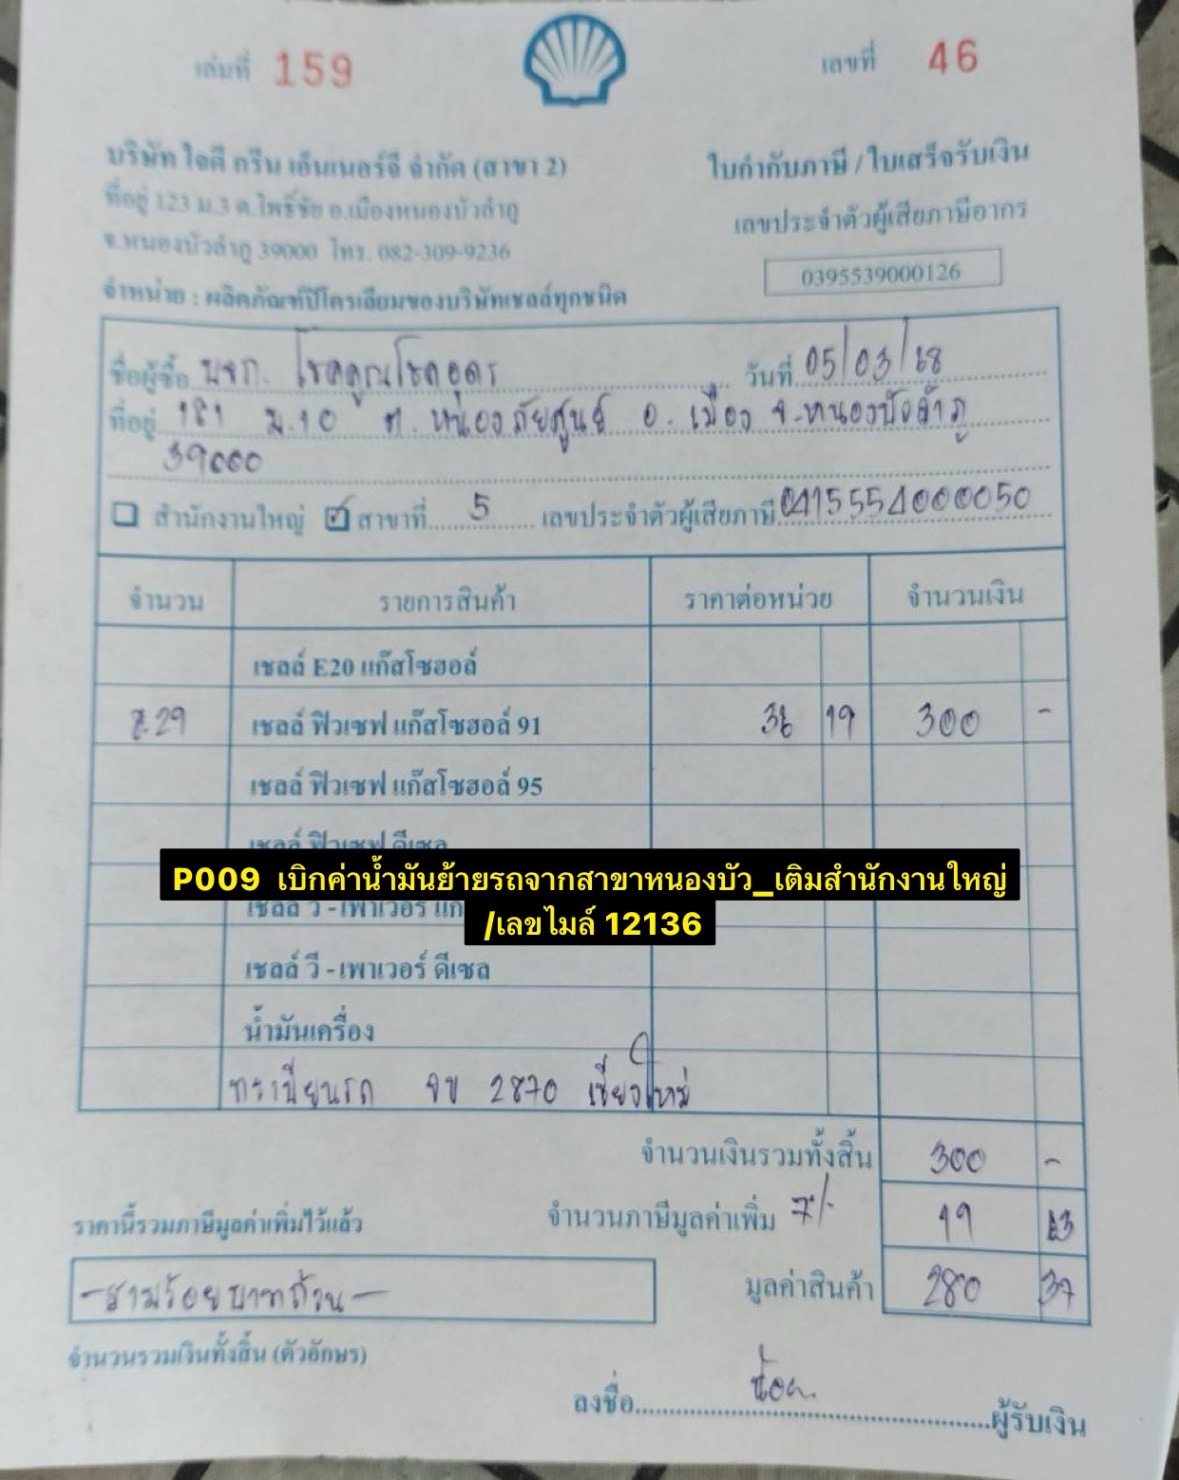 เล่มที่ 159
เลขที่ 46
บริษัท ใจดี กรีน เอ็นเนอร์จี จำกัด (สาขา 2)
ที่อยู่ 123 ม.3 ต.โพธิ์ชัย อ.เมืองหนองบัวลำภู
จ.หนองบัวลำภู 39000 โทร. 082-309-9236
จำหน่าย : ผลิตภัณฑ์ปิโตรเลียมของบริษัทเชลล์ทุกชนิด
ใบกำกับภาษี / ใบเสร็จรับเงิน
เลขประจำตัวผู้เสียภาษีอากร
0395539000126
ชื่อผู้ซื้อ บจก. โชคคูณโชคอุดร วันที่ 05/03/68
ที่อยู่ 181 ม.10 ต. หนองภัยศูนย์ อ. เมือง จ.หนองบัวลำภู
39000
สำนักงานใหญ่ สาขาที่ 5 เลขประจำตัวผู้เสียภาษี 0415554000050
จำนวน รายการสินค้า ราคาต่อหน่วย จำนวนเงิน
เชลล์ E20 แก๊สโซฮอล์
8.29 เชลล์ ฟิวเซฟ แก๊สโซฮอล์ 91 36 19 300 -
เชลล์ ฟิวเซฟ แก๊สโซฮอล์ 95
เชลล์ ฟิวเซฟ ดีเซล
P009 เบิกค่าน้ำมันย้ายรถจากสาขาหนองบัว_เติมสำนักงานใหญ่
/เลขไมล์ 12136
เชลล์ วี - เพาเวอร์ แก
เชลล์ วี - เพาเวอร์ ดีเซล
น้ำมันเครื่อง
ทะเบียนรถ จข 2870 เชียงใหม่
จำนวนเงินรวมทั้งสิ้น 300 -
ราคานี้รวมภาษีมูลค่าเพิ่มไว้แล้ว จำนวนภาษีมูลค่าเพิ่ม 7% 19 63
- สามร้อยบาทถ้วน - มูลค่าสินค้า 280 37
จำนวนรวมเงินทั้งสิ้น (ตัวอักษร)
ลงชื่อ น้อย ผู้รับเงิน